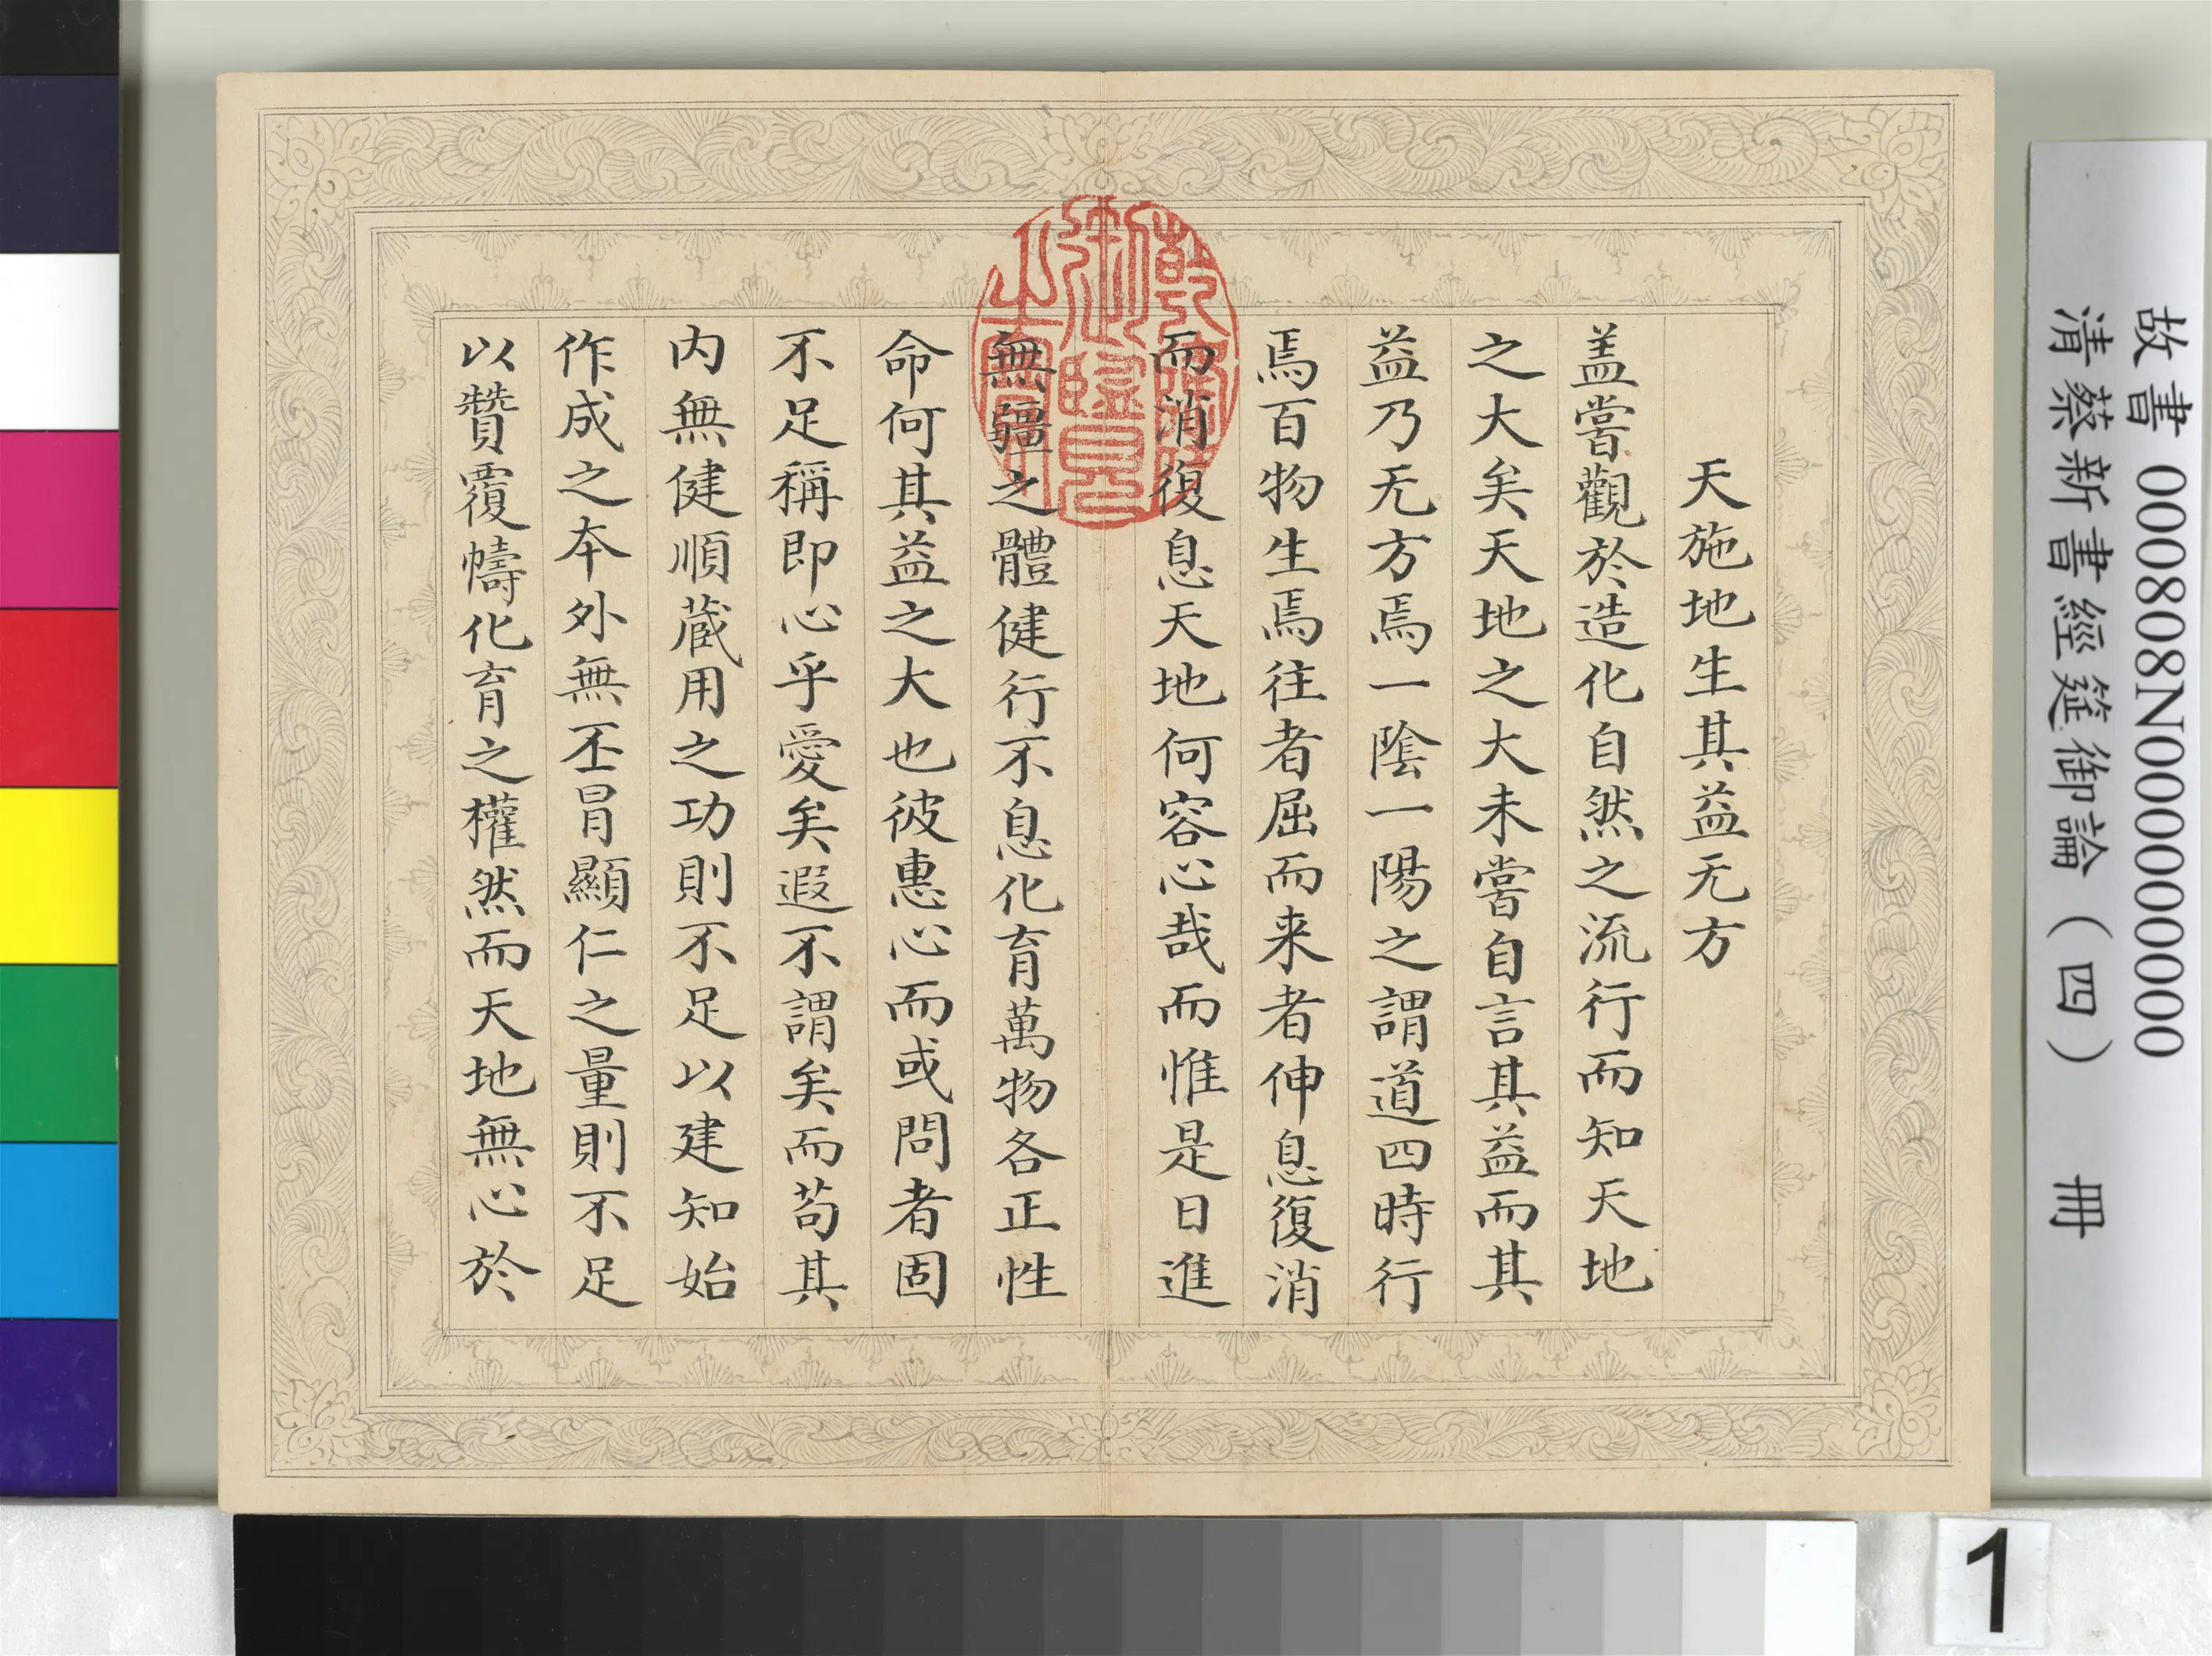 天施地生其益无方
盖嘗觀於造化自然之流行而知天地
之大矣天地之大未嘗自言其益而其
益乃无方焉一陰一陽之謂道四時行
焉百物生焉往者屈而来者伸息復消
而消復息天地何容心哉而惟是日進
無疆之體健行不息化育萬物各正性
命何其益之大也彼惠心而或問者固
不足稱即心乎愛矣遐不謂矣而苟其
内無健順蔵用之功則不足以建知始
作成之本外無丕冐顯仁之量則不足
以贊覆幬化育之權然而天地無心於
乾隆
御覽
之寶
故書 000808N000000000
清蔡新書經筵御論（四） 冊
1